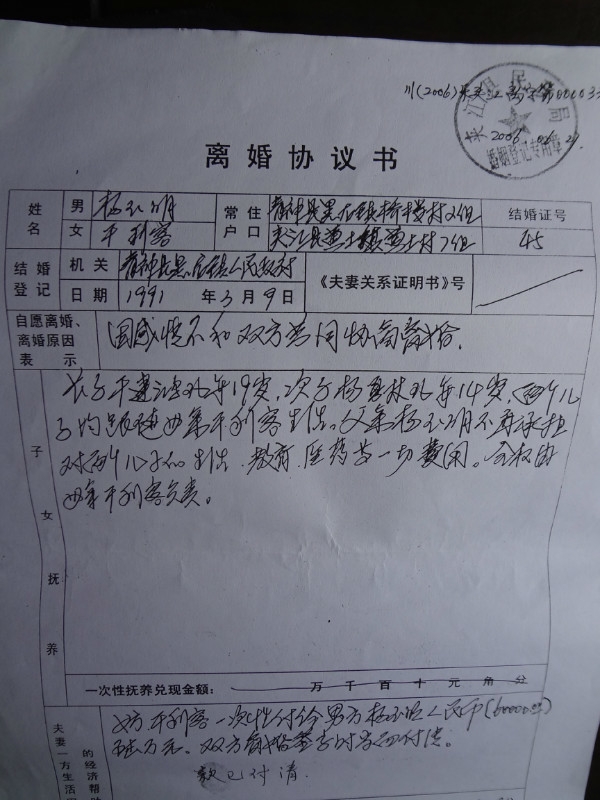 川(2006)夹
民
局
2006
婚姻登记专用章
离婚协议书
姓名
男
女
平利容
常住户口
青神县黑龙镇桥楼村2组
夹江县 土 村7组
结婚证号
45
结婚登记
机关
青神县黑龙镇人民政府
日期
1991年3月9日
《夫妻关系证明书》号
自愿离婚、离婚原因表示
因感情不和双方共同协商离婚.
子女抚养
长子平 现年19岁,次子杨 林现年14岁,两个儿
子均跟随母亲平利容生活。父亲杨 明不再承担
对两个儿子的生活、教育、医药等一切费用。全权由
母亲平利容负责。
一次性抚养兑现金额: 万 千 百 十 元 角 分
夫妻一方生活
的经济帮助
女方平利容一次性付给男方杨 明人民币(60000元)
陆万元。双方离婚签字时当面付清。
款已付清.